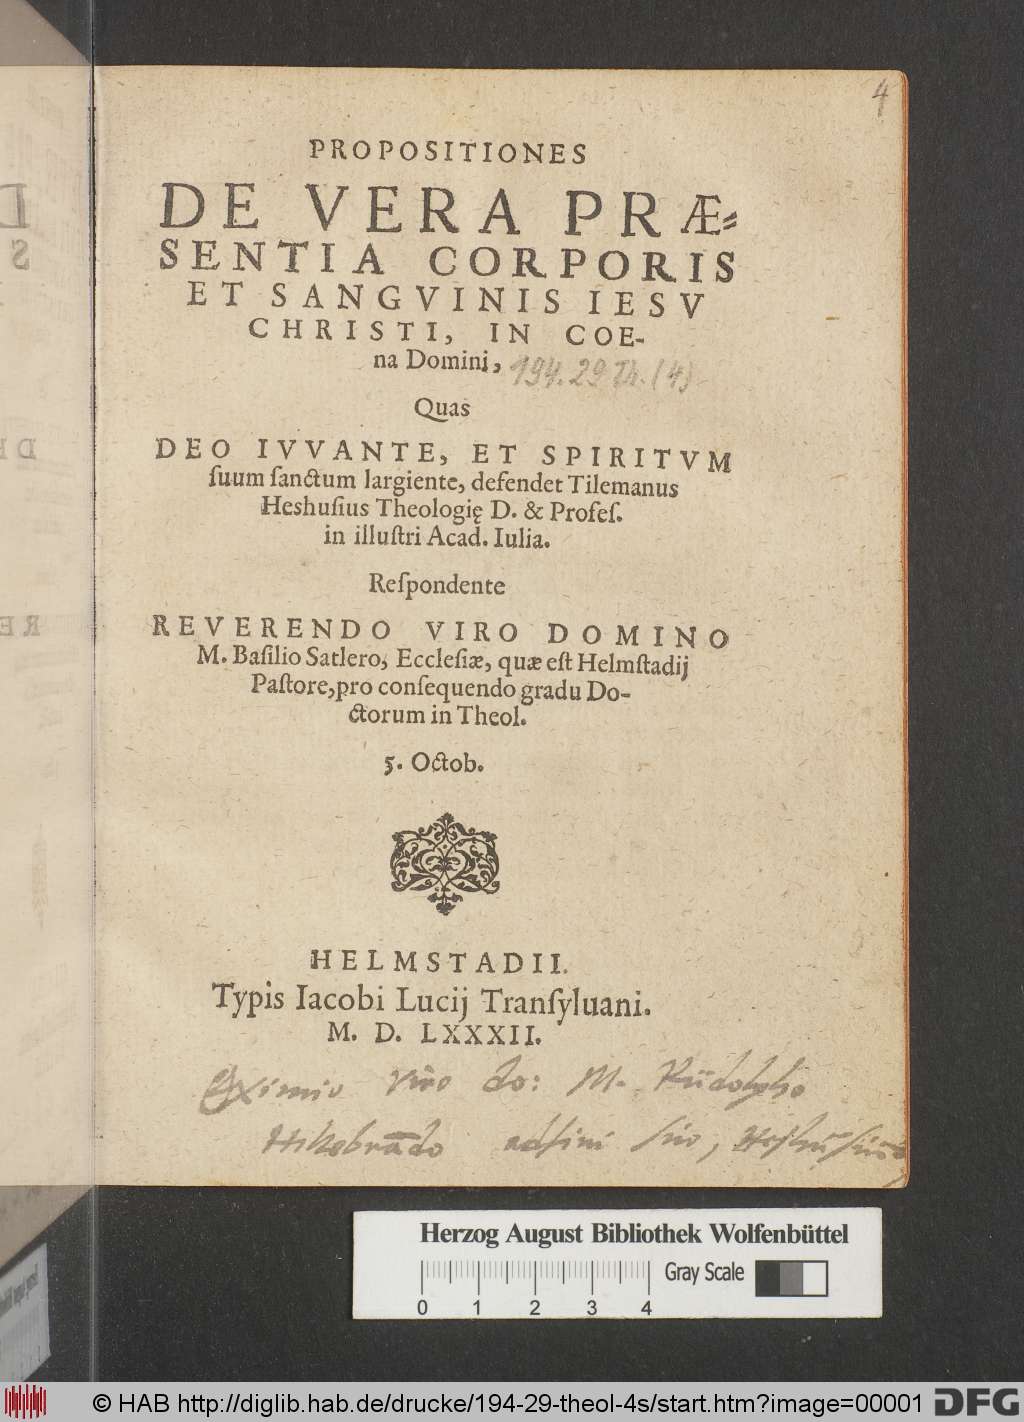 4
PROPOSITIONES
DE VERA PRÆ⸗
SENTIA CORPORIS
ET SANGVINIS IESV
CHRISTI, IN COE-
na Domini, 194. 29 Th. (4)
Quas
DEO IVVANTE, ET SPIRITVM
ſuum ſanctum largiente, defendet Tilemanus
Heshuſius Theologię D. & Profeſ.
in illuſtri Acad. Iulia.
Reſpondente
REVERENDO VIRO DOMINO
M. Baſilio Satlero, Eccleſiæ, quæ eſt Helmſtadij
Paſtore, pro conſequendo gradu Do-
ctorum in Theol.
5. Octob.
HELMSTADII.
Typis Iacobi Lucij Tranſyluani.
M. D. LXXXII.
Eximio viro do: M. Rudolpho
adfini ſuo,
Herzog August Bibliothek Wolfenbüttel
Gray Scale
0 1 2 3 4
© HAB http://diglib.hab.de/drucke/194-29-theol-4s/start.htm?image=00001 DFG